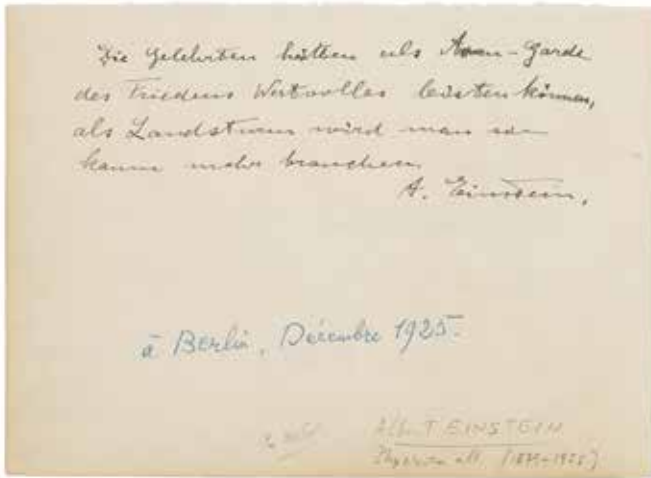 Die Gelehrten hätten als Avan-Garde
des Friedens Wertvolles leisten können,
als Landsturm wird man sie
kaum mehr brauchen.
A. Einstein.
à Berlin, Décembre 1925.
EINSTEIN
all.